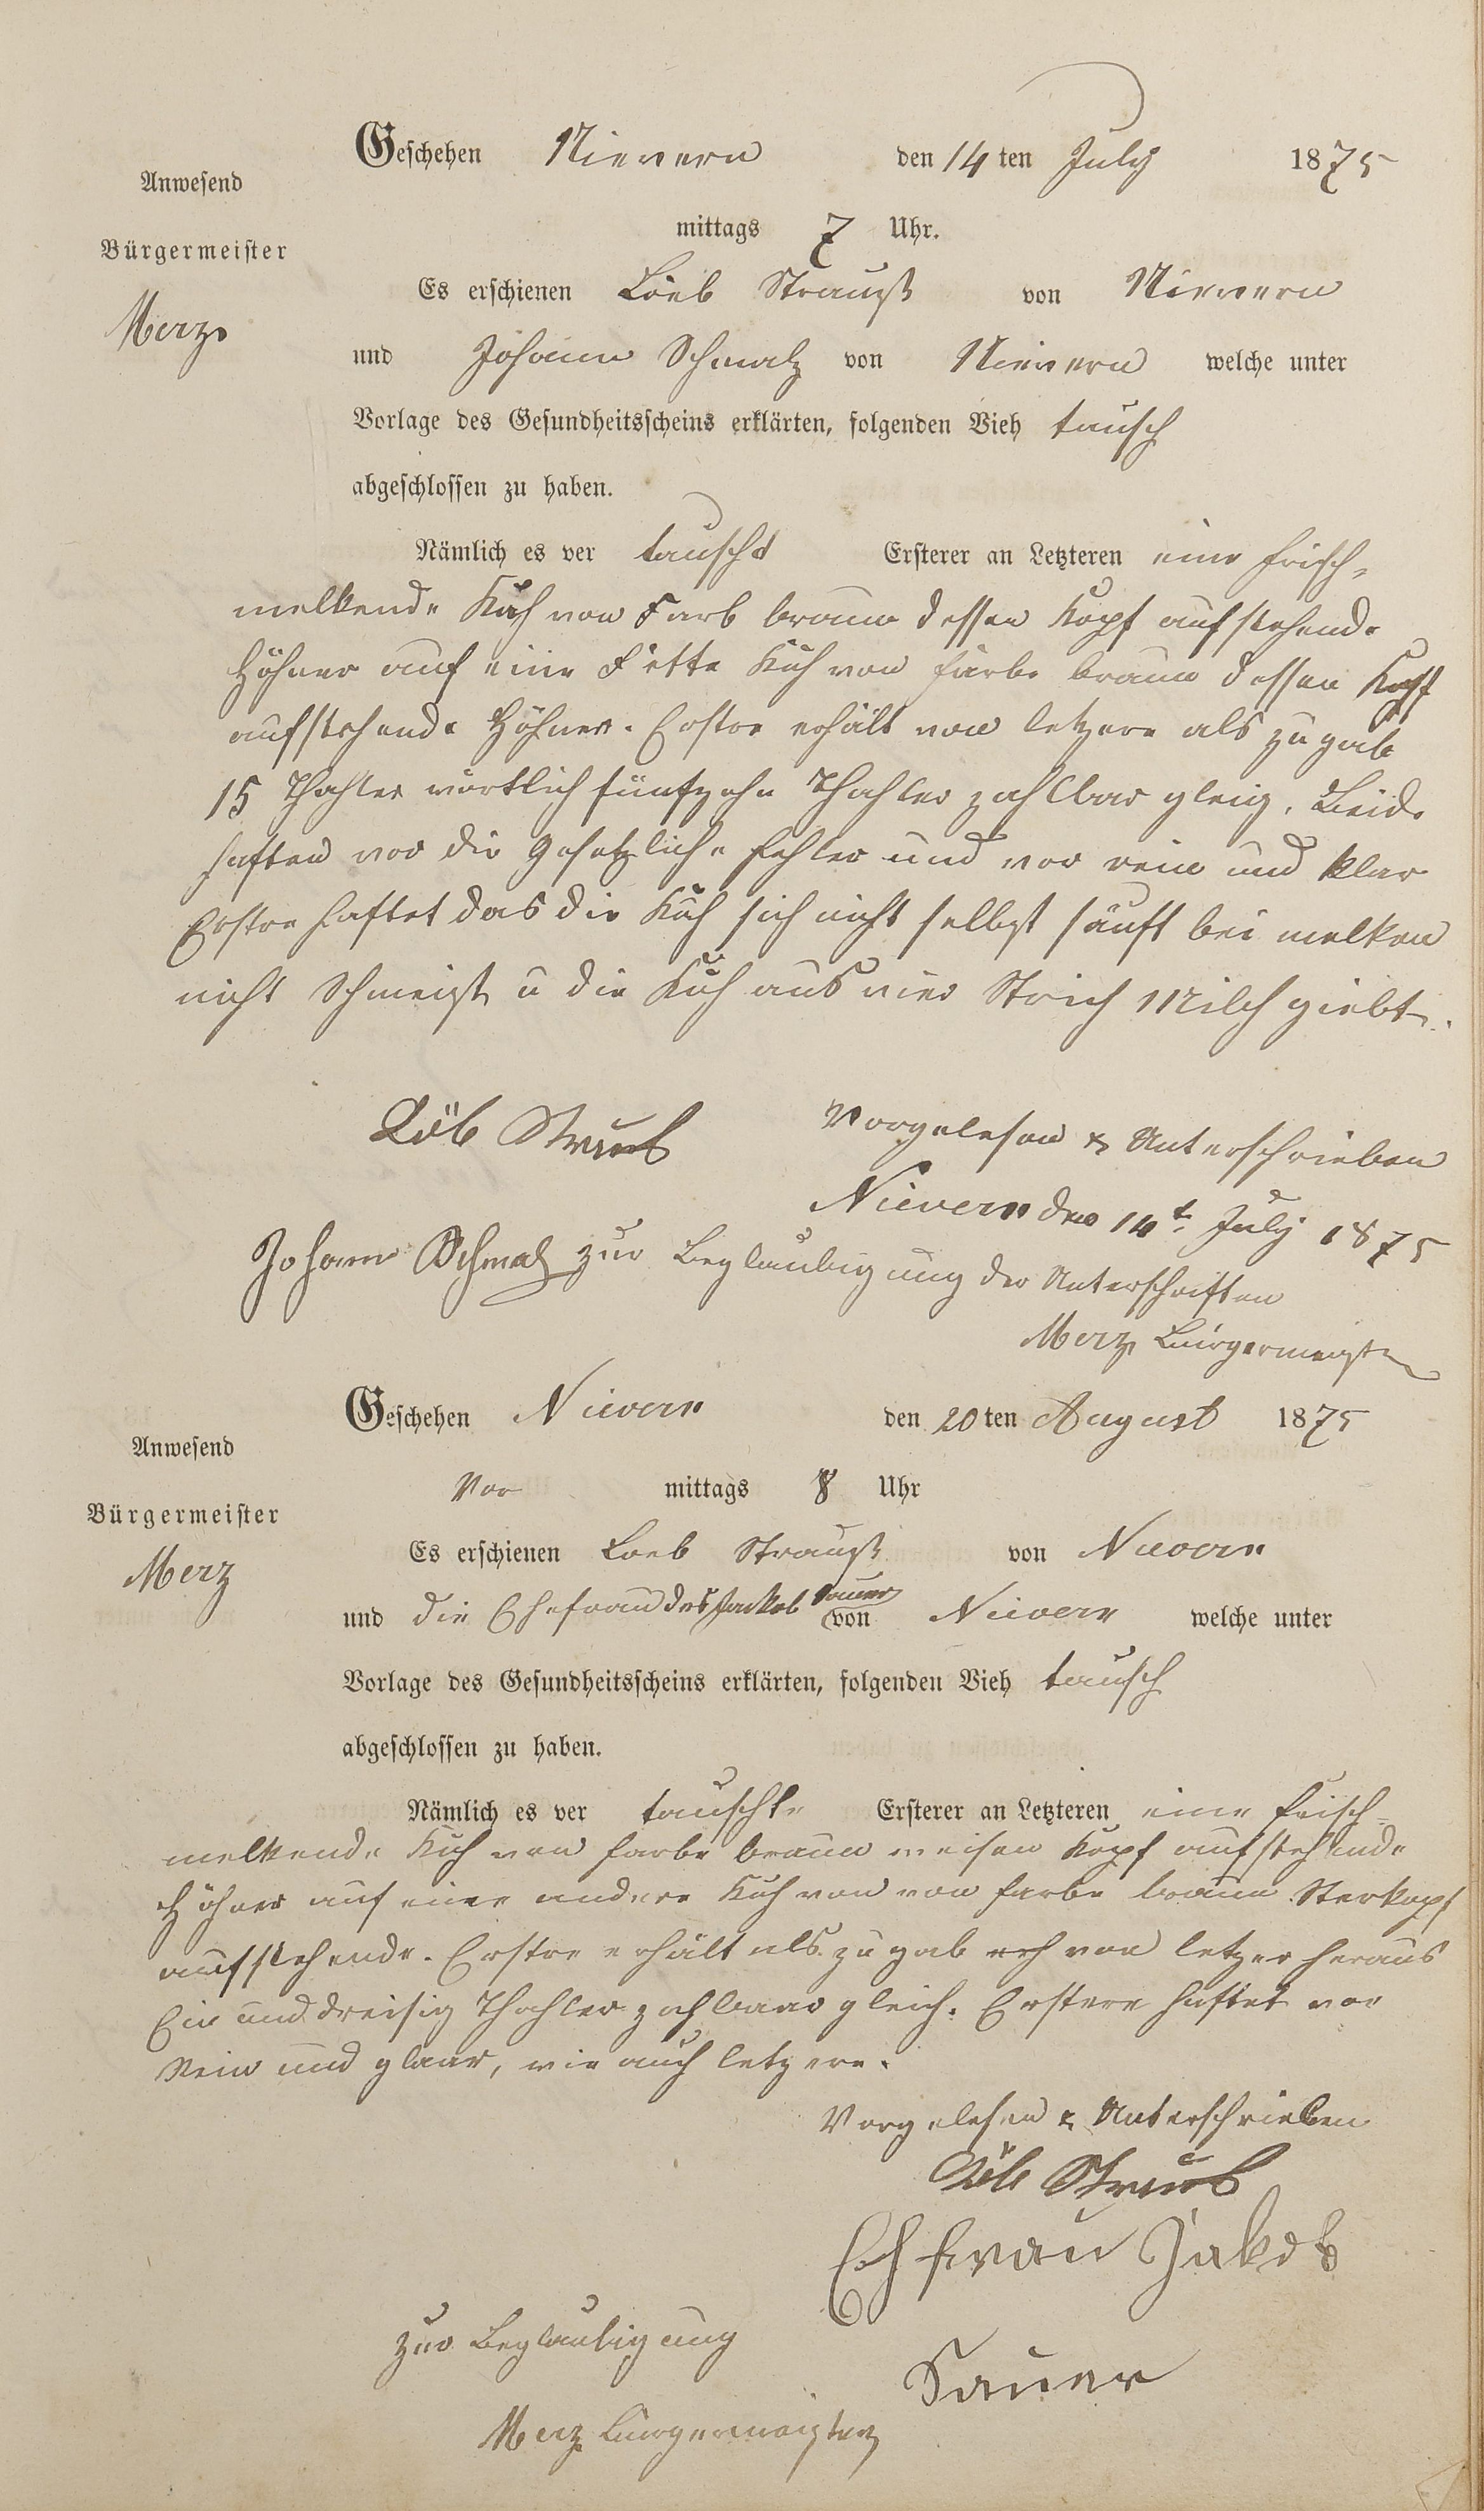 Geschehen Nievern den 14 ten July 1875
Anwesend
mittags 7 Uhr.
Bürgermeister
Es erschienen Löeb Strauß von Nievern
Merz
und Johann Schmalz von Nievern welche unter
Vorlage des Gesundheitsscheins erklärten, folgenden Vieh tausch
abgeschlossen zu haben.
Nämlich es ver tauscht Ersterer an Letzteren eine frisch-
melkende Kuh von Farb braun dessen Kopf aufstehende
Höhner auf eine Fette Kuh von farbe braun dessen Kopf
aufstehende Höhner. Erstre erhält von letzere als zugab
15 Thahler wörtlich fünfzehn Thahler zahlbar gleig. Beide
haften vor die Gesetzliche fehler und vor rein und klar
Erstre haftet das die Kuh sich nicht selbst säuft bei melken
nicht Schmeist u die Kuh aus vier Strich Milch giebt.
Löb Straus Vorgelesen & Unterschrieben
Nievern den 14t July 1875
Johann Schmalz zur Beglaubigung der Unterschriften
Merz Bürgermeister
Geschehen Nievern den 20 ten August 1875
Anwesend
Vor mittags 8 Uhr
Bürgermeister
Es erschienen Loeb Strauß von Nievern
Merz
und die Ehefrau des Jackob Sauer von Nievern welche unter
Vorlage des Gesundheitsscheins erklärten, folgenden Vieh tausch
abgeschlossen zu haben.
Nämlich es ver tauschte Ersterer an Letzteren eine frisch-
melkende Kuh von farbe braun weisen Kopf aufstehende
Höhner auf eine andere Kuh von von farbe braun Sterkopf
aufstehende. Erstre erhält als zugab von letzer heraus
Ein und dreisig Thahler zahlbaar gleich. Erstere haftet vor
Rein und glaar, wie auch letzere.
Vorgelesen & Unterschrieben
Löb Straus
Ehfrau Jakob
zur Beglaubigung
Sauer
Merz Bürgermeister